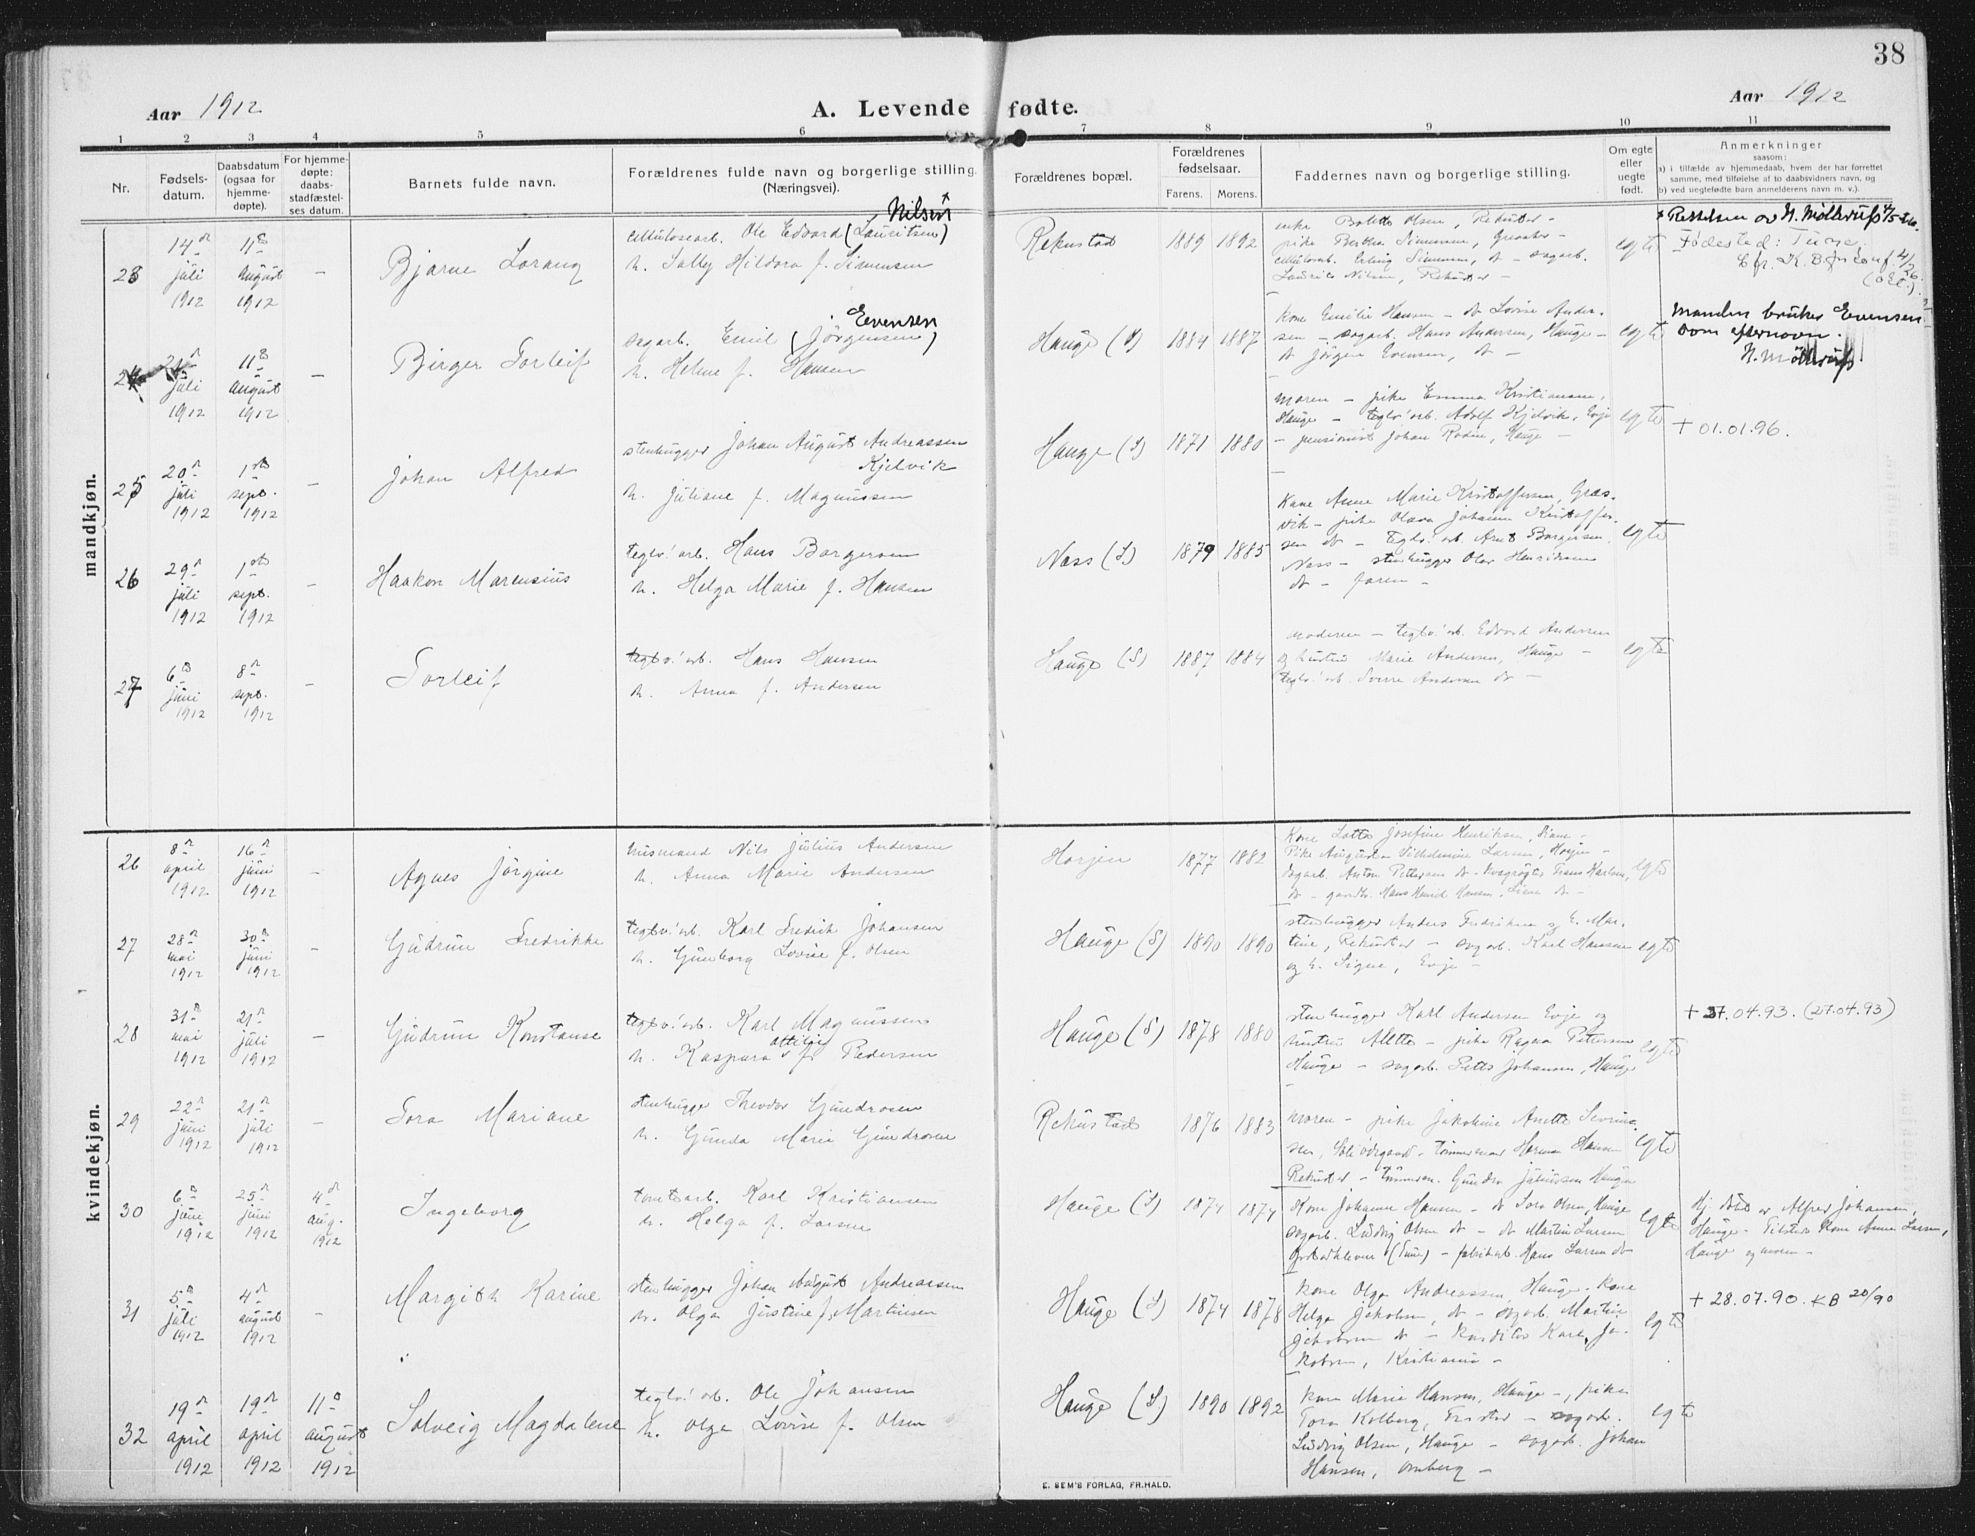 38
Aar 1912
A. Levende fødte.
Aar 1912
1 2 3 4 5 6 7 8 9 10 11
Nr.
Fødsels-
datum.
Daabsdatum
(ogsaa for
hjemme-
døpte).
For hjemme-
døpte:
daabs-
stadfæstel-
ses datum.
Barnets fulde navn.
Forældrenes fulde navn og borgerlige stilling.
(Næringsvei).
Forældrenes bopæl.
Forældrenes
fødselsaar.
Farens. Morens.
Faddernes navn og borgerlige stilling.
Om egte
eller
uegte
født.
Anmerkninger
saasom:
a) i tilfælde av hjemmedaab, hvem der har forrettet
samme, med tilføielse af to daabsvidners navn, og
b) ved uegtefødte barn anmelderens navn m. v.).
mandkjøn.
23
14de juli 1912
11te August 1912
–
Bjarne Lorang
Nilsen
celluloscarb. Ole Edvard (Lauritsen)
h. Sally Hildora f. Simensen
Rekustad
1889 1892
enke Bolette Olsen, Rekustad –
pike Simensen, Greaaker –
Erling Simensen, do – sagarb.
Laurits Nilsen, Rekustad –
egte
Rettelsen av N. Møllerufs 4/5-26.
Fødested: Tune.
24
juli 1912
11te august 1912
–
Birger Torleif
Evensen
sagarb. Emil (Jörgensen)
h. Helene f. Hansen
Hauge
1884 1887
Kone Emilie Hansen – do Lovise Ander-
sen – sagarb. Hans Andersen, Hauge –
do Jörgen Evensen, do –
egte
Manden bruker Evensen
som efternavn.
N. Møllerufs
25
20de juli 1912
1ste sept. 1912
–
Johan Alfred
stenhugger Johan August Andreassen
Kjelvik
h. Juliane f. Magnussen
Hauge (L)
1871 1880
Moren – pike Emma Kristiansen,
Hauge – teglv. arb. Adolf Kjelvik, Evje
– pensionist Johan Rodin, Hauge –
egte
+ 01.01.96.
26
29de juli 1912
1ste sept. 1912
–
Haakon Marensius
teglv. arb. Hans Borgersen
h. Helga Marie f. Hansen
Næss (L)
1879 1885
Kone Anne Marie Kristoffersen, Græs-
vik – pike Olava Johanne Kristoffer-
sen do – teglv. arb. Borgersen,
Næss – stenhugger Olav Henriksen
do – faren –
egte
27
6te juni 1912
8de sept. 1912
–
Torleif
teglv. arb. Hans Hansen
h. Anna f. Andersen
Hauge (S)
1887 1884
Moderen – teglv. arb. Edvard Andersen
og hustru Marie Andersen, Hauge –
teglv. arb. Sverre Andersen do –
egte
kvindekjøn.
26
8de april 1912
16de juni 1912
–
Agnes Jörgine
husmand Nils Julius Andersen
h. Anna Marie Andersen
Horjen
1877 1882
Kone Lotte Josefine Henriksen, –
Pike Augusta Vilhelmine Larsen, Horjen –
sagarb. Anton Pettersen do – Frans Karlsen,
do – Hansen, do –
egte
27
28de mai 1912
30de juni 1912
–
Gudrun Fredrikke
teglv. arb. Karl Fredrik Johansen
h. Gunborg Lovise f. Olsen
Hauge (S)
1890 1890
stenhugger Anders Fredriksen og h. Mar-
tine, Rekustad – sagarb. Karl Hansen
og h. Signe, Evje –
egte
28
31de mai 1912
21de juli 1912
–
Gudrun Konstanse
teglv. arb. Karl Magnussen
h. Kaspara Ottilie f. Pedersen
Hauge (S)
1878 1880
stenhugger Karl Andersen Evje og
hustru Alette – pike Ragna Pettersen
Hauge – sagarb. Johansen, Hauge
–
egte
+ 27.04.93. (27.04.93)
29
22de juni 1912
21de juli 1912
–
Tora Mariane
stenhugger Theodor Gundrosen
h. Gunda Marie Gundrosen
Rekustad
1876 1883
Moren – pike Jakobine Anette Sevrin-
sen, – tömmermand Herman Hansen
Rekustad – Gundro Juliussen Hauge
egte
30
6te juni 1912
25de juni 1912
4de aug. 1912
Ingeborg
tomtearb. Karl Kristiansen
h. Helga f. Larsen
Hauge (L)
1874 1874
Kone Johanne Hansen – do Tora Olsen, Hauge
sagarb. Ludvig Olsen do – do Martin Larsen
(Tune) – fabrikarb. Hans Larsen do –
egte
Hj. döbt av Alfred Johansen,
Hauge – Tilstede Kone Anne Larsen,
Hauge og moren –
31
5te juli 1912
4de august 1912
–
Margith Karine
stenhugger Johan August Andreassen
h. Olga Justine f. Martinsen
Hauge (L)
1874 1878
Kone Olga Andreassen, Hauge – kone
Helga Jakobsen, do – sagarb. Martin
Jakobsen do – Konditor Karl Ja-
kobsen, Kristiania –
egte
+ 28.07.90. KB 20/90
32
19de april 1912
19de april 1912
11te august 1912
Solveig Magdalene
teglv. arb. Ole Johansen
h. Olga Lovise f. Olsen
Hauge (L)
1890 1892
Kone Marie Hansen, Hauge –, pike
Tora Kolberg, – sagarb.
Ludvig Olsen, Hauge – sagarb. Johan
Hansen, Omberg –
egte
E. SEM'S FORLAG, FR.HALD.